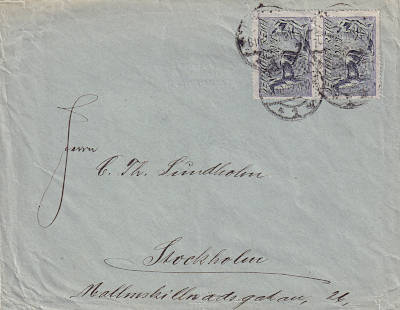 Herrn
C. Th. Lundholm
Stockholm
Malmskillnadsgatan, 26,